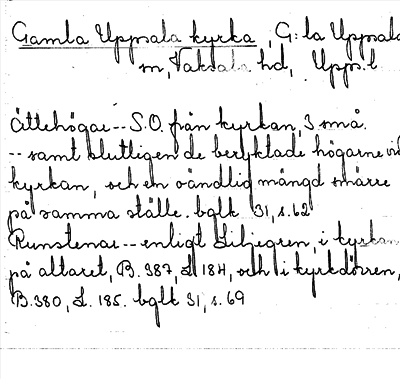 Gamla Uppsala kyrka, G:la Uppsala
sn, Vaksala hd, Upps. l
Ättehögar -- S.O. från kyrkan, 3 små.
-- samt slutligen de beryktade högarne vid
kyrkan, och en oändlig mängd smärre
på samma ställe. bglk 31, s. 62
Runstenar -- enligt Liljegren, i kyrkan
på altaret, B. 387, L. 184, och i kyrkdörren,
B. 380, L. 185. bglk 31, s. 69